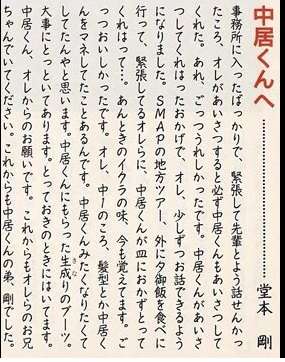 中居くんへ
堂本 剛
事務所に入ったばっかりで、緊張して先輩とよう話せんかっ
たころ、オレがあいさつすると必ず中居くんもあいさつして
くれた。あれ、ごっつうれしかったです。中居くんがあいさ
つしてくれはったおかげで、オレ、少しずつお話できるよう
になりました。SMAPの地方ツアー、外に夕御飯を食べに
行って、緊張してるオレらに、中居くんが皿におかずとって
くれはって…。あんときのイクラの味、今も覚えてます。ご
っつおいしかったです。オレ、中1のころ、髪型とか中居く
んをマネしてたことあるんです。中居くんみたくなりたくて
してたんやと思います。中居くんにもらった生成りのブーツ。
きな
大事にとっといてあります。とっておきのときにはいてます。
中居くん、オレからのお願いです。これからもオレらのお兄
ちゃんでいてください。これからも中居くんの弟、剛でした。